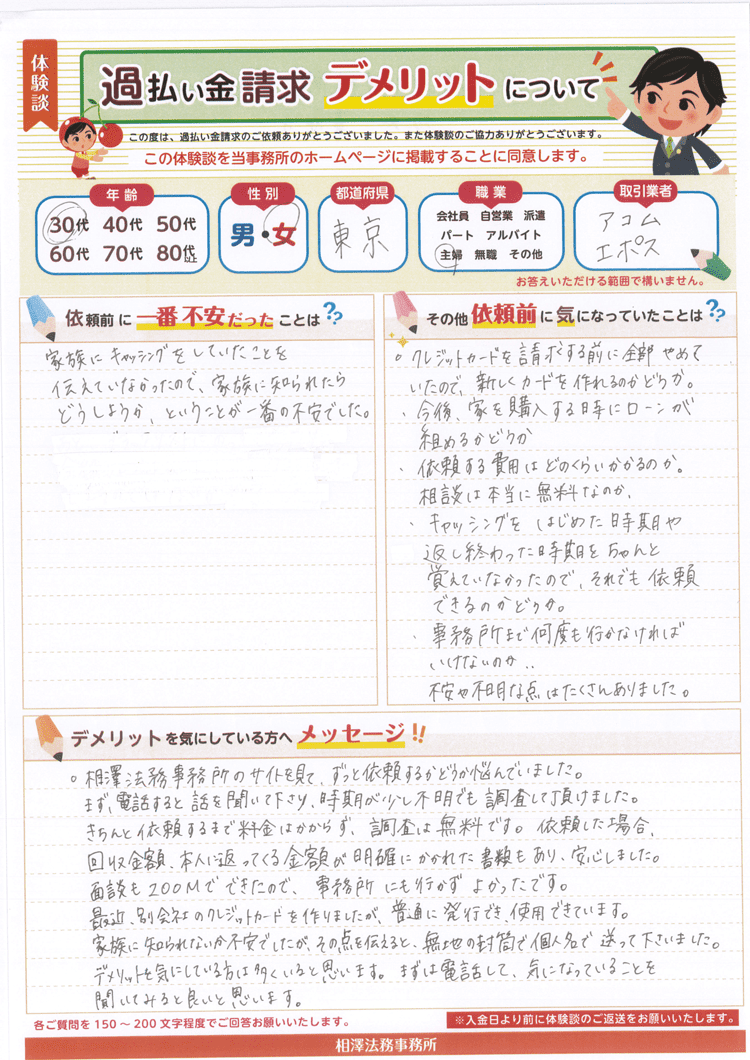 体験談
過払い金請求 デメリットについて
この度は、過払い金請求のご依頼ありがとうございました。また体験談のご協力ありがとうございます。
この体験談を当事務所のホームページに掲載することに同意します。
年齢
30代 40代 50代
60代 70代 80代以上
性別
男・女
都道府県
東京
職業
会社員 自営業 派遣
パート アルバイト
主婦 無職 その他
取引業者
アコム
エポス
お答えいただける範囲で構いません。
依頼前に一番不安だったことは??
家族にキャッシングをしていたことを
伝えていなかったので、家族に知られたら
どうしようか、ということが一番の不安でした。
その他依頼前に気になっていたことは??
○ クレジットカードを請求する前に全部やめて
いたので、新しくカードを作れるのかどうか。
・今後、家を購入する時にローンが
組めるかどうか
・依頼する費用はどのくらいかかるのか。
相談は本当に無料なのか、
・キャッシングをはじめた時期や
返し終わった時期をちゃんと
覚えていなかったので、それでも依頼
できるのかどうか。
・事務所まで何度も行かなければ
いけないのか..
不安や不明な点はたくさんありました。
デメリットを気にしている方へメッセージ!!
○ 相澤法務事務所のサイトを見て、ずっと依頼するかどうか悩んでいました。
まず、電話すると話を聞いて下さり、時期が少し不明でも調査して頂けました。
きちんと依頼するまで料金はかからず、調査は無料です。依頼した場合、
回収金額、本人に返ってくる金額が明確にかかれた書類もあり、安心しました。
面談もZOOMでできたので、事務所にも行かずよかったです。
最近、別会社のクレジットカードを作りましたが、普通に発行でき、使用できています。
家族に知られないか不安でしたが、その点を伝えると、無地の封筒で個人名で送って下さいました。
デメリットを気にしている方は多くいると思います。まずは電話して、気になっていることを
聞いてみると良いと思います。
各ご質問を150～200文字程度でご回答お願いいたします。
※入金日より前に体験談のご返送をお願いいたします。
相澤法務事務所